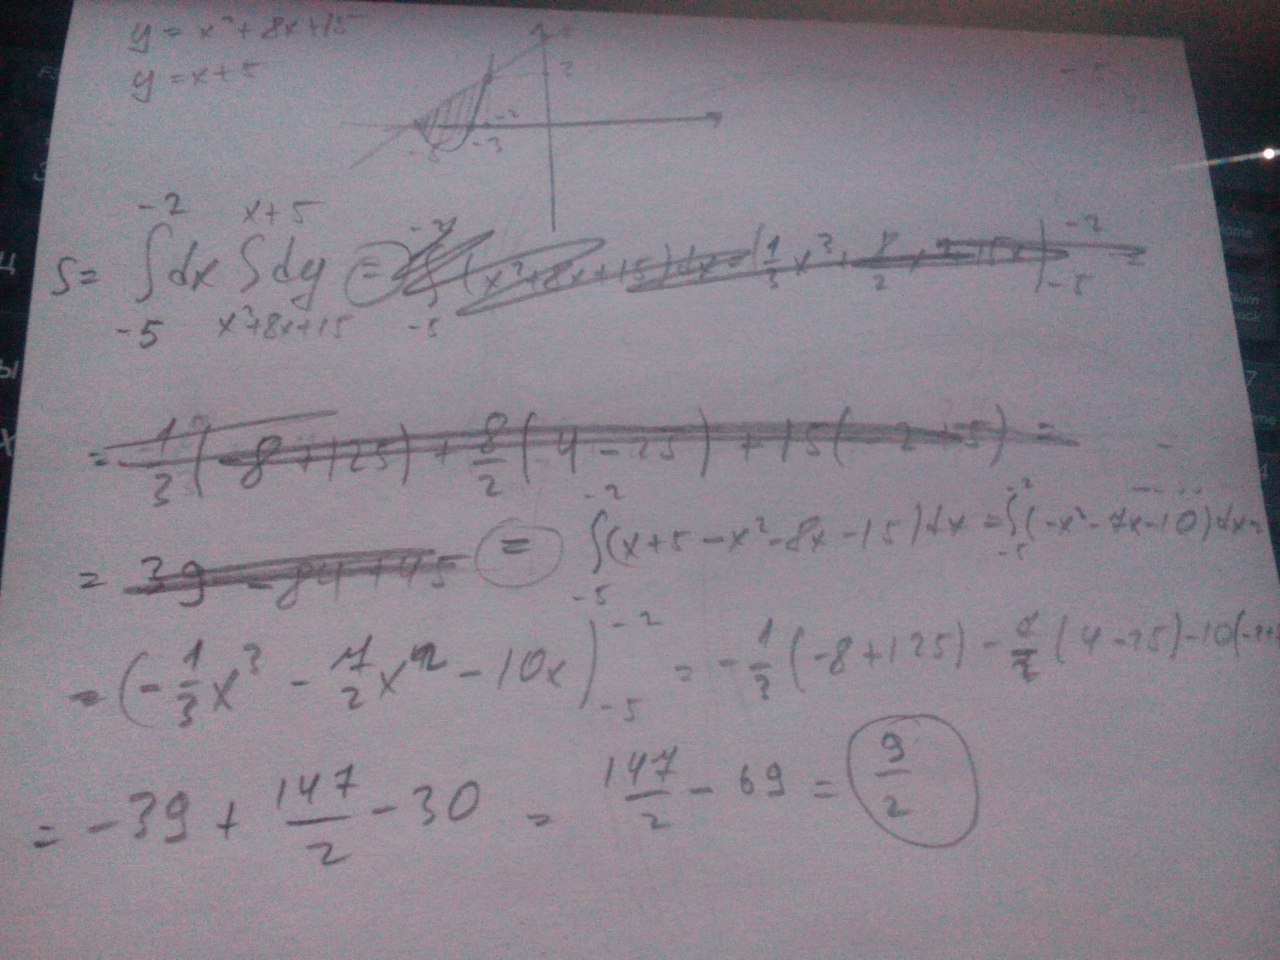 y = x² + 8x + 15
y = x + 5
2
-2
-5 -3
S = ∫_{-5}^{-2} dx ∫_{x²+8x+15}^{x+5} dy = ∫_{-5}^{-2} (x² + 8x + 15) dx = (1/3 x³ + 8/2 x² + 15x) |_{-5}^{-2} =
= 1/3 (-8 + 125) + 8/2 (4 - 25) + 15(-2 + 5) =
= 39 - 84 + 45 = ∫_{-5}^{-2} (x + 5 - x² - 8x - 15) dx = ∫_{-5}^{-2} (-x² - 7x - 10) dx =
= (-1/3 x³ - 7/2 x² - 10x) |_{-5}^{-2} = -1/3 (-8 + 125) - 7/2 (4 - 25) - 10(-2+
= -39 + 147/2 - 30 = 147/2 - 69 = 9/2